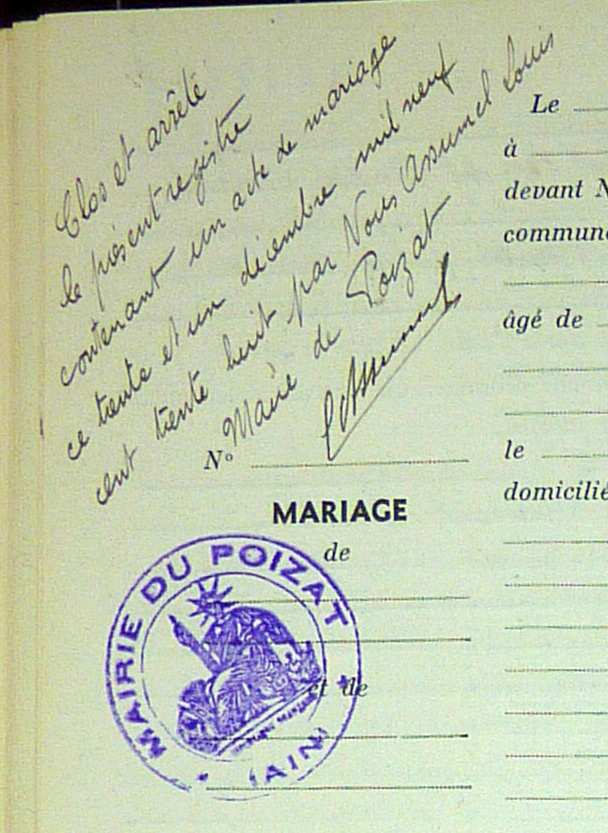 Clos et arrêté
le présent registre
contenant un acte de mariage
ce trente et un décembre mil neuf
cent trente huit par Nous Assumel Louis
Maire de Poizat
LAssumel
N°
MARIAGE
de
et de
MAIRIE DU POIZAT
(AIN)
Le
à
devant N
commun
âgé de
le
domicilié